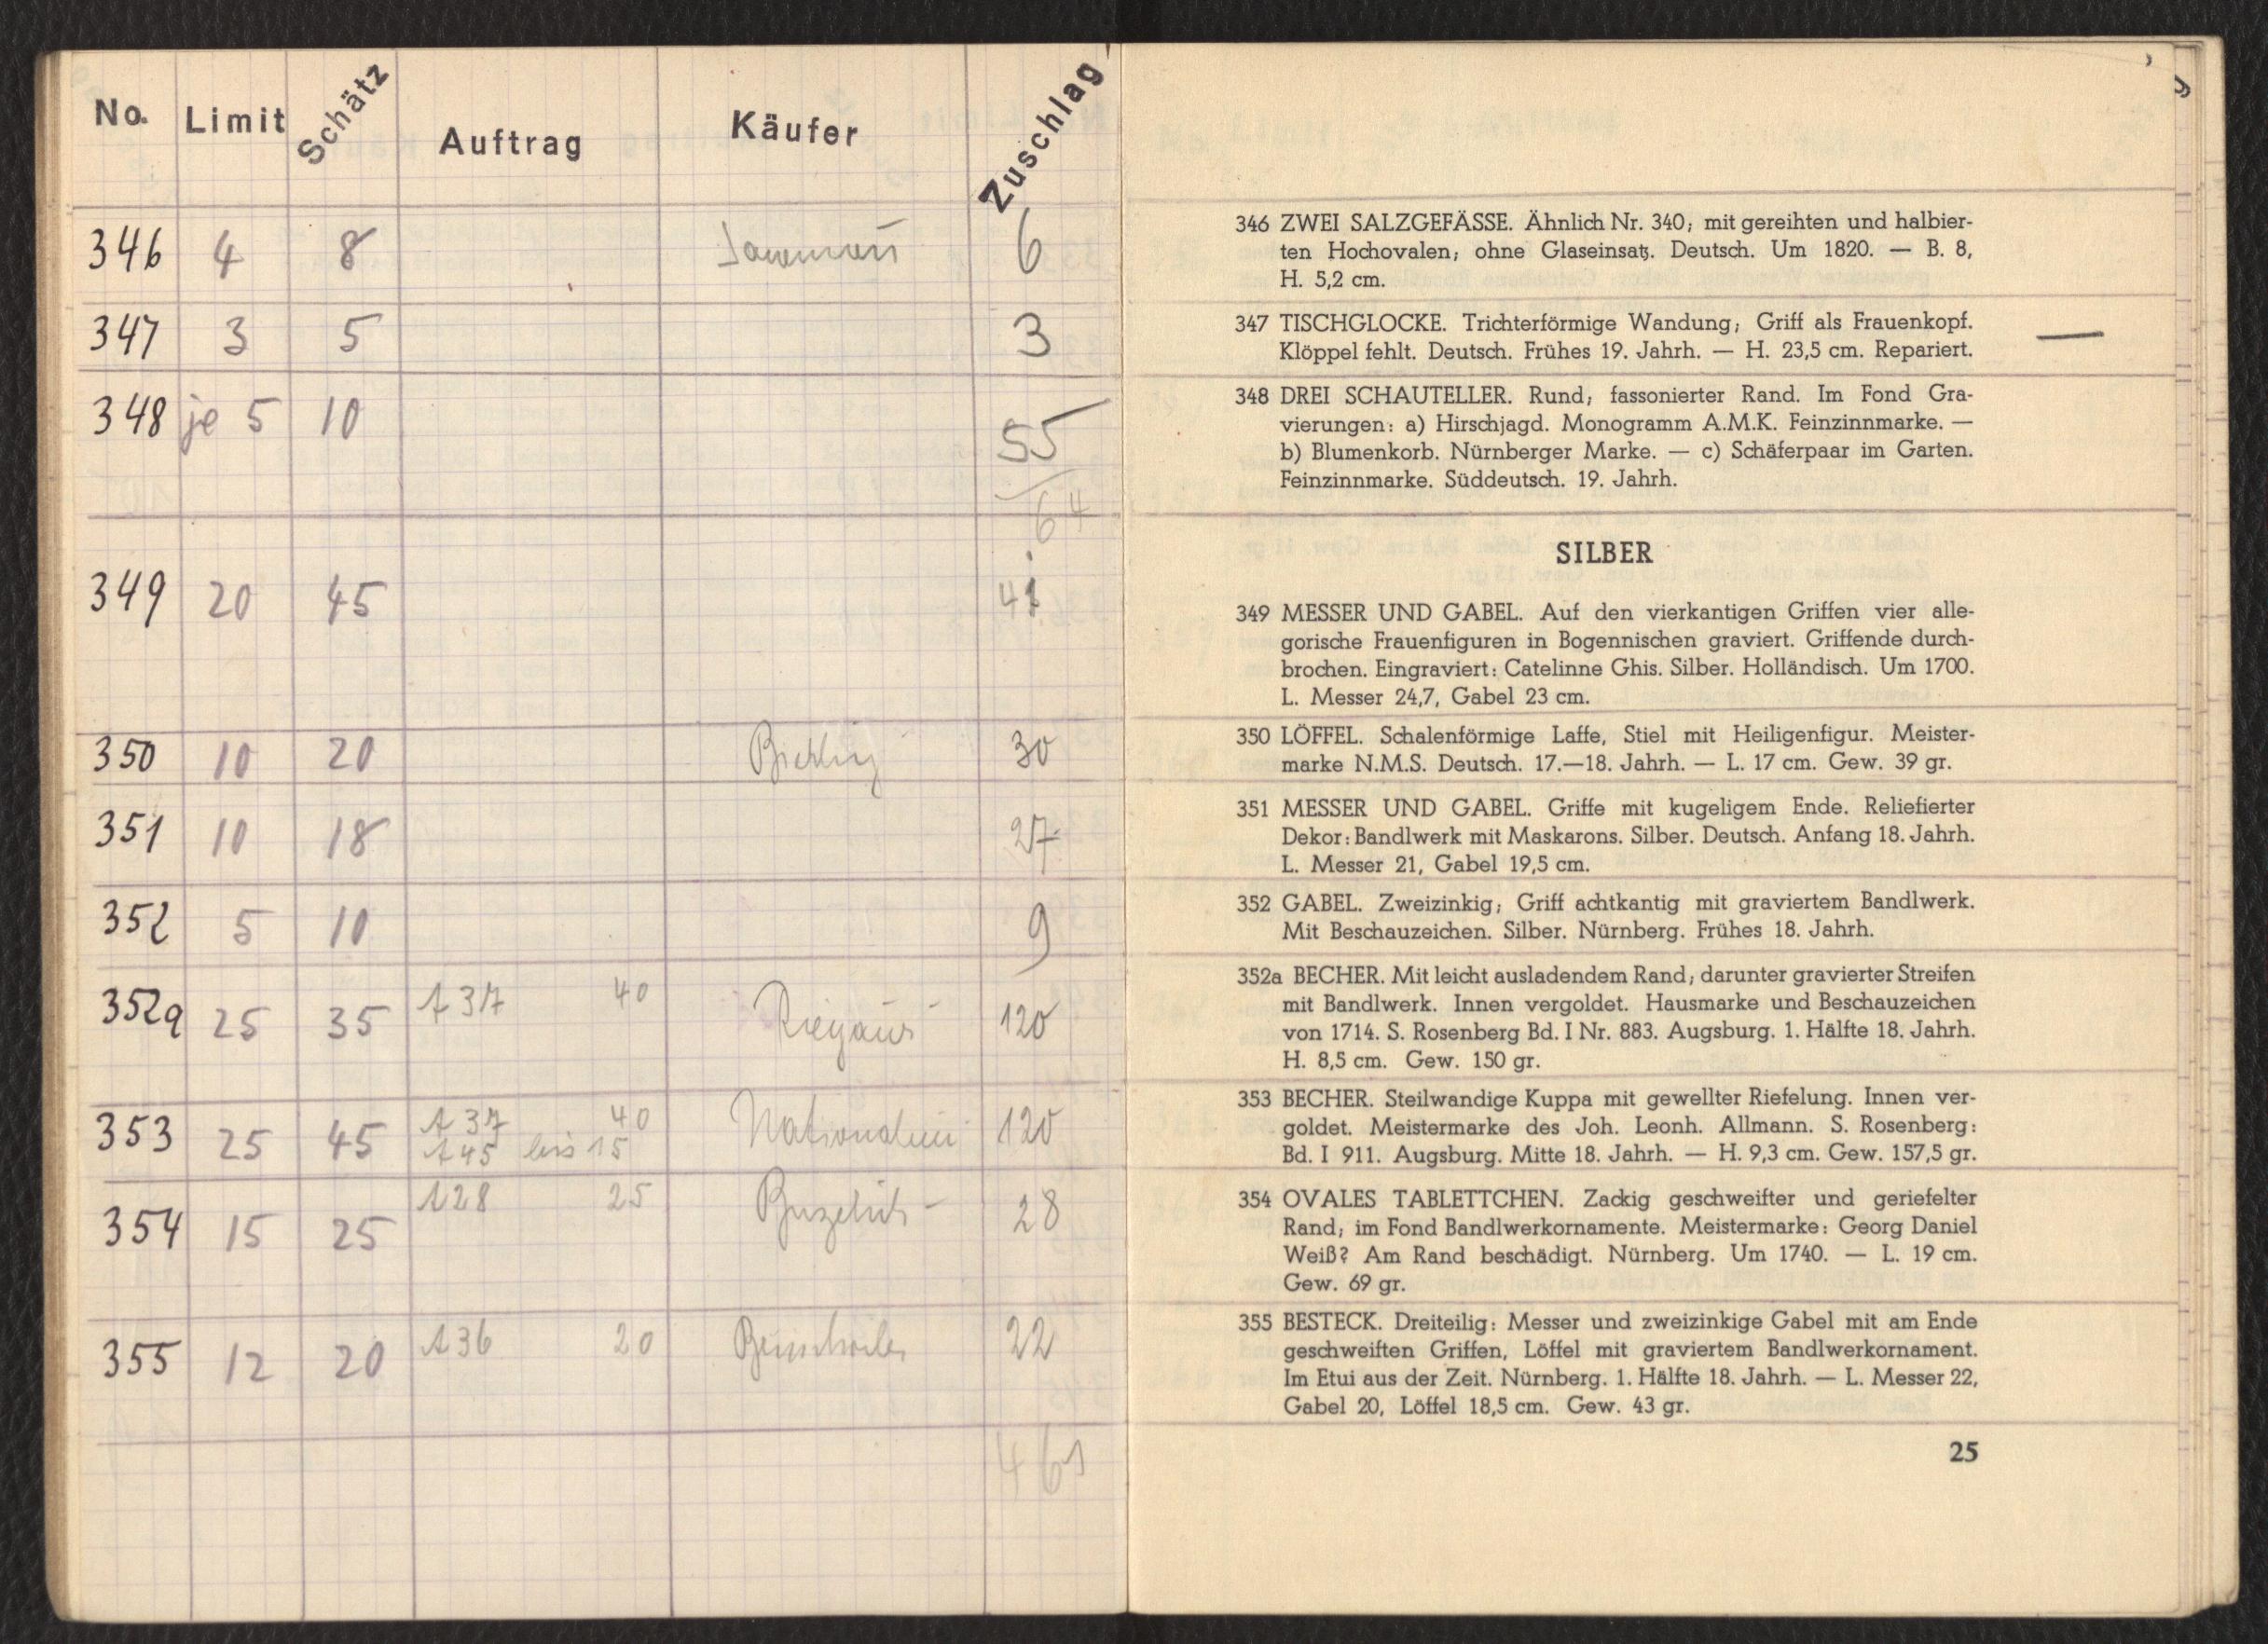 No. Limit Schätz Auftrag Käufer Zuschlag
346 4 8 6
347 3 5 3
348 je 5 10 55
64
349 20 45
350 10 20 30
351 10 18 27
352 5 10 9
352a 25 35 A 37 40 120
353 25 45 A 37 40 120
A 45 bis 15
354 15 25 A 28 25 28
355 12 20 A 36 20 22
461
346 ZWEI SALZGEFÄSSE. Ähnlich Nr. 340; mit gereihten und halbier-
ten Hochovalen; ohne Glaseinsatz. Deutsch. Um 1820. — B. 8,
H. 5,2 cm.
347 TISCHGLOCKE. Trichterförmige Wandung; Griff als Frauenkopf.
Klöppel fehlt. Deutsch. Frühes 19. Jahrh. — H. 23,5 cm. Repariert.
348 DREI SCHAUTELLER. Rund; fassonierter Rand. Im Fond Gra-
vierungen: a) Hirschjagd. Monogramm A.M.K. Feinzinnmarke. —
b) Blumenkorb. Nürnberger Marke. — c) Schäferpaar im Garten.
Feinzinnmarke. Süddeutsch. 19. Jahrh.
SILBER
349 MESSER UND GABEL. Auf den vierkantigen Griffen vier alle-
gorische Frauenfiguren in Bogennischen graviert. Griffende durch-
brochen. Eingraviert: Catelinne Ghis. Silber. Holländisch. Um 1700.
L. Messer 24,7, Gabel 23 cm.
350 LÖFFEL. Schalenförmige Laffe, Stiel mit Heiligenfigur. Meister-
marke N.M.S. Deutsch. 17.—18. Jahrh. — L. 17 cm. Gew. 39 gr.
351 MESSER UND GABEL. Griffe mit kugeligem Ende. Reliefierter
Dekor: Bandlwerk mit Maskarons. Silber. Deutsch. Anfang 18. Jahrh.
L. Messer 21, Gabel 19,5 cm.
352 GABEL. Zweizinkig; Griff achtkantig mit graviertem Bandlwerk.
Mit Beschauzeichen. Silber. Nürnberg. Frühes 18. Jahrh.
352a BECHER. Mit leicht ausladendem Rand; darunter gravierter Streifen
mit Bandlwerk. Innen vergoldet. Hausmarke und Beschauzeichen
von 1714. S. Rosenberg Bd. I Nr. 883. Augsburg. 1. Hälfte 18. Jahrh.
H. 8,5 cm. Gew. 150 gr.
353 BECHER. Steilwandige Kuppa mit gewellter Riefelung. Innen ver-
goldet. Meistermarke des Joh. Leonh. Allmann. S. Rosenberg:
Bd. I 911. Augsburg. Mitte 18. Jahrh. — H. 9,3 cm. Gew. 157,5 gr.
354 OVALES TABLETTCHEN. Zackig geschweifter und geriefelter
Rand; im Fond Bandlwerkornamente. Meistermarke: Georg Daniel
Weiß? Am Rand beschädigt. Nürnberg. Um 1740. — L. 19 cm.
Gew. 69 gr.
355 BESTECK. Dreiteilig: Messer und zweizinkige Gabel mit am Ende
geschweiften Griffen, Löffel mit graviertem Bandlwerkornament.
Im Etui aus der Zeit. Nürnberg. 1. Hälfte 18. Jahrh. — L. Messer 22,
Gabel 20, Löffel 18,5 cm. Gew. 43 gr.
25